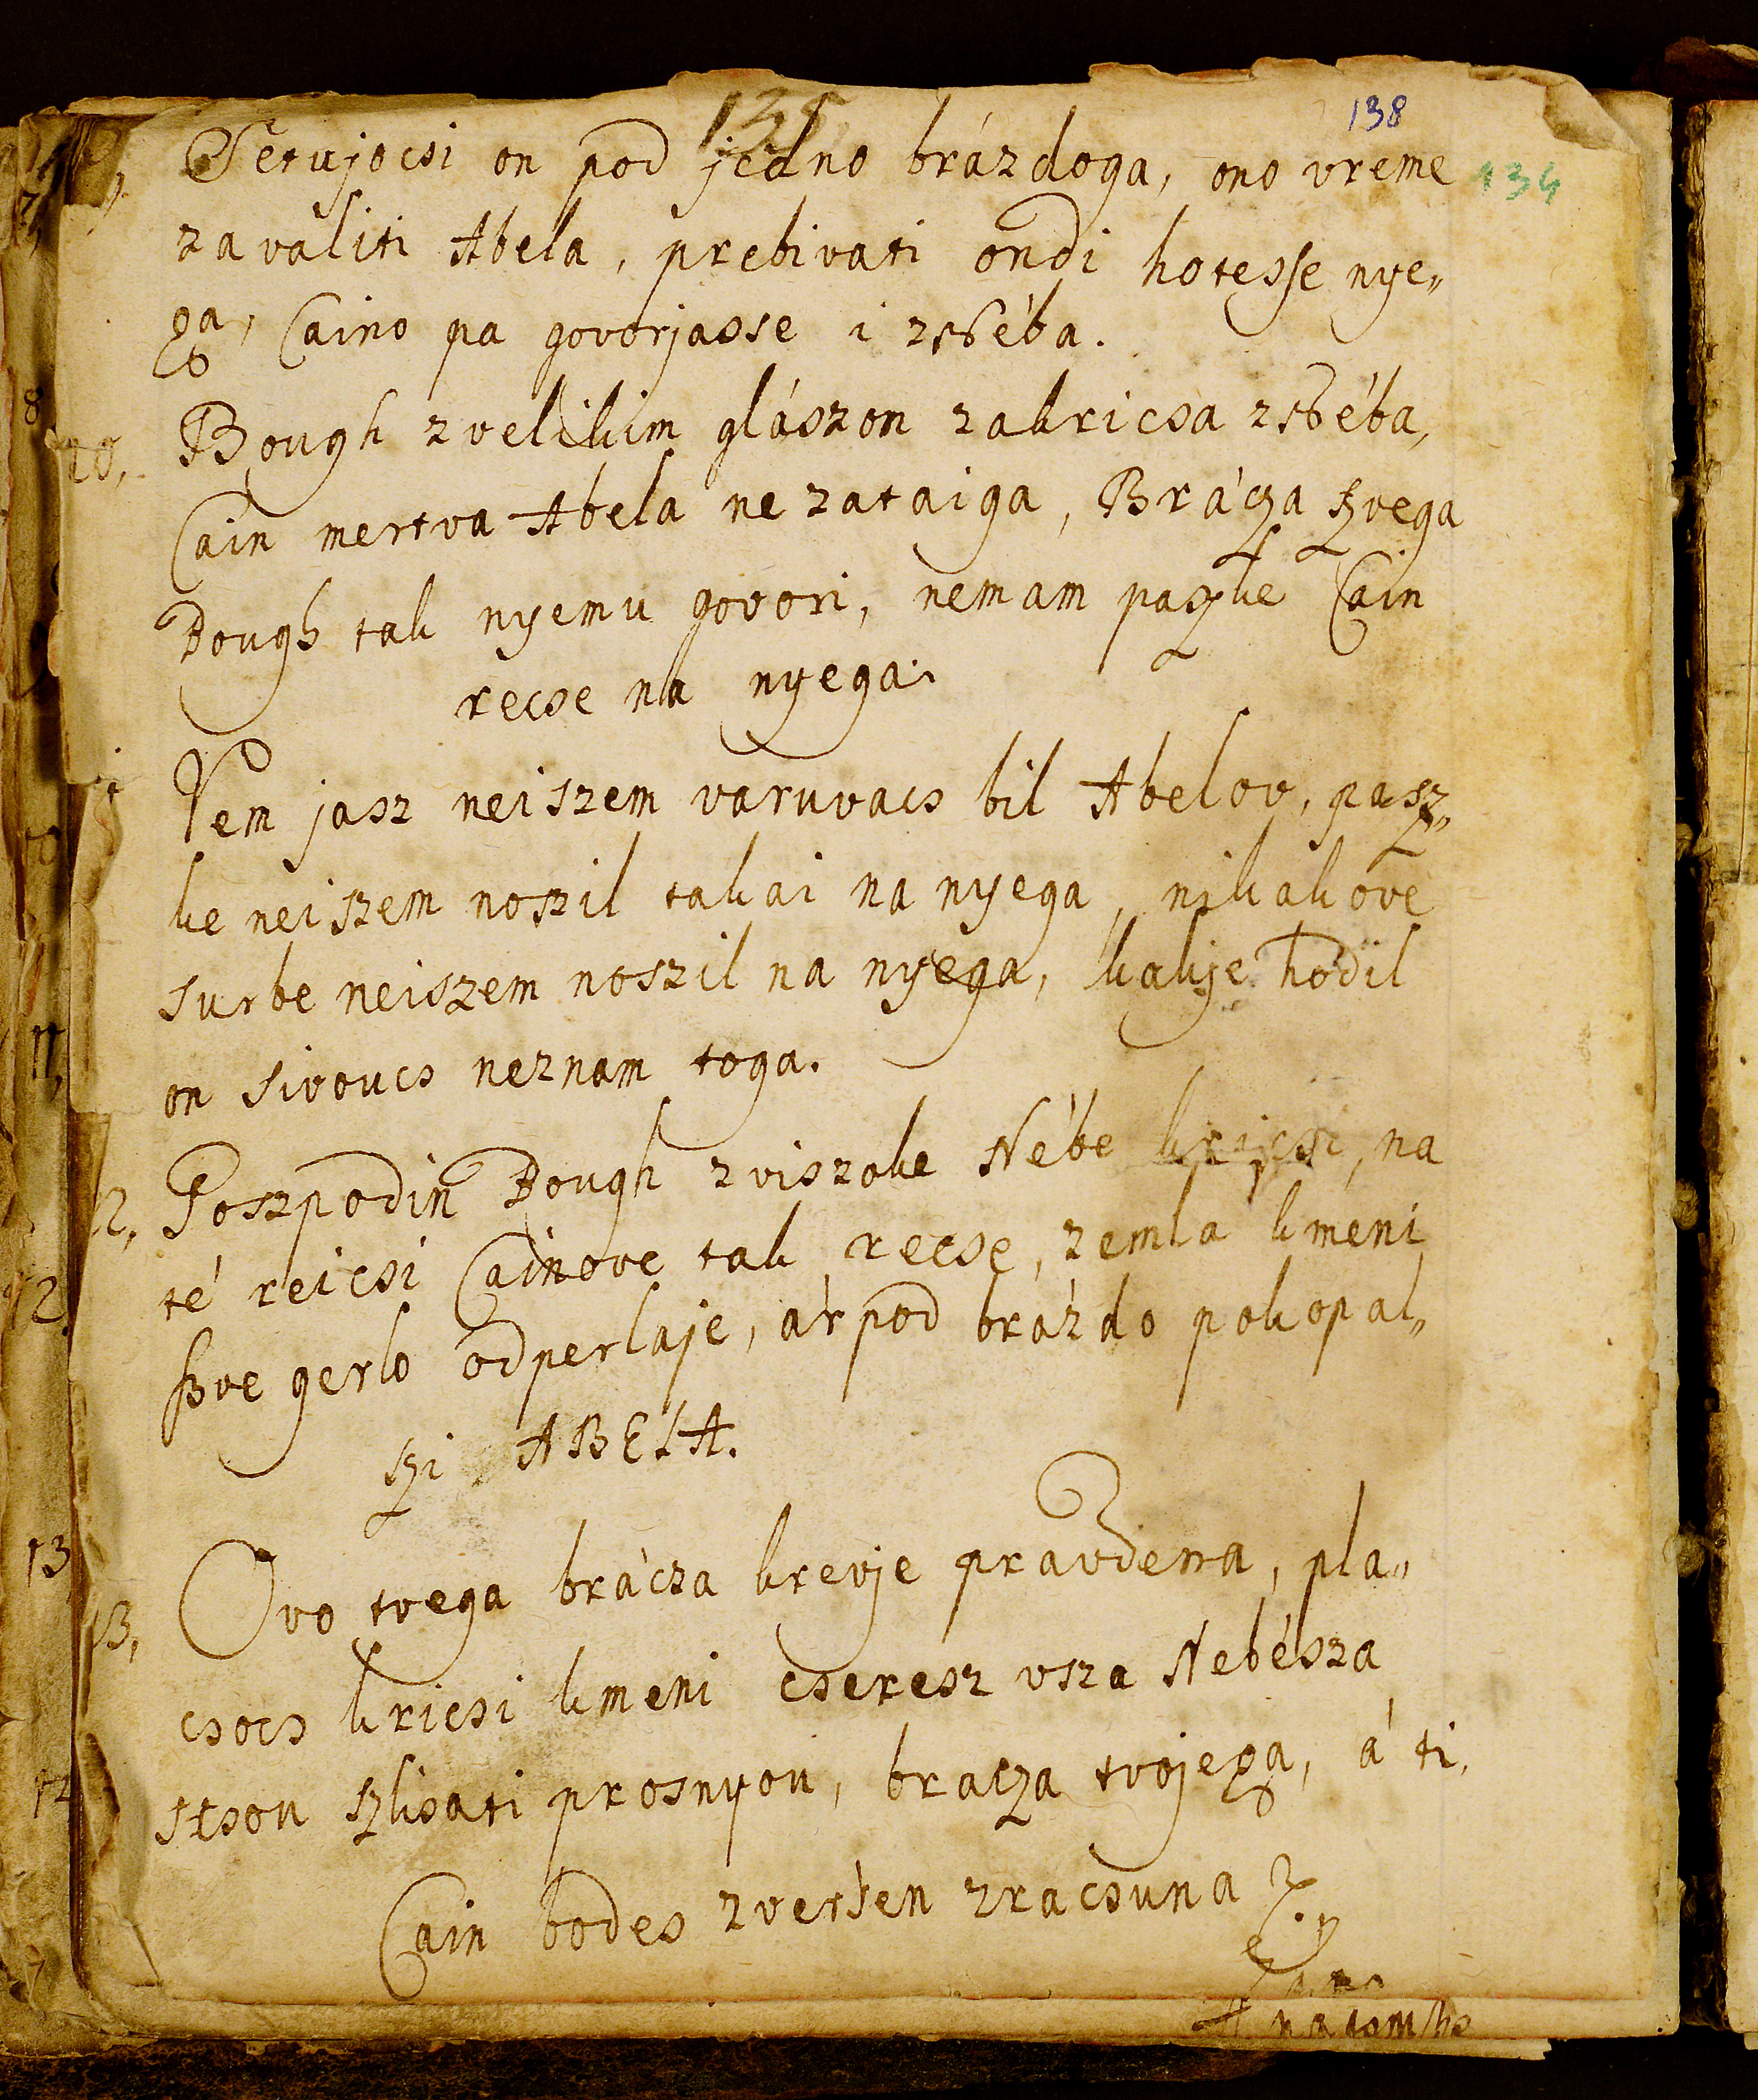 135
138
Setujocsi on pod jedno brázdoga, ono vreme
134
zavaliti Abela, prebivati ondi hotesse nye„
ga, Caino pa govorjasse i zNéba.
10, Bough zvelikim glászon zakricsa zNéba,
Cain mertva Abela ne zataiga, Brácza szvega
Bough tak nyemu govori, nemam paszke Cain
recse na nyega.
Nem jasz neiszem varuvacs bil Abelov, pasz„
ke neiszem noszil takai na nyega, nikakove
surbe neiszem noszil na nyega, kakje hodil
on sivoucs neznam toga.
12, Goszpodin Bough zviszoke Nébe kricsi, na
té reicsi Cainove tak recse, zemla kmeni
szve gerlo odperlaje, ár pod brázdo pokopal„
szi ABELA.
13, Ovo tvega brácza krevje pravdena, pla„
csocs kricsi kmeni cseresz vsza Nebésza
stsou szlisati prosnyou, bracza tvojega, á ti,
Cain bodes zversen zracsuna